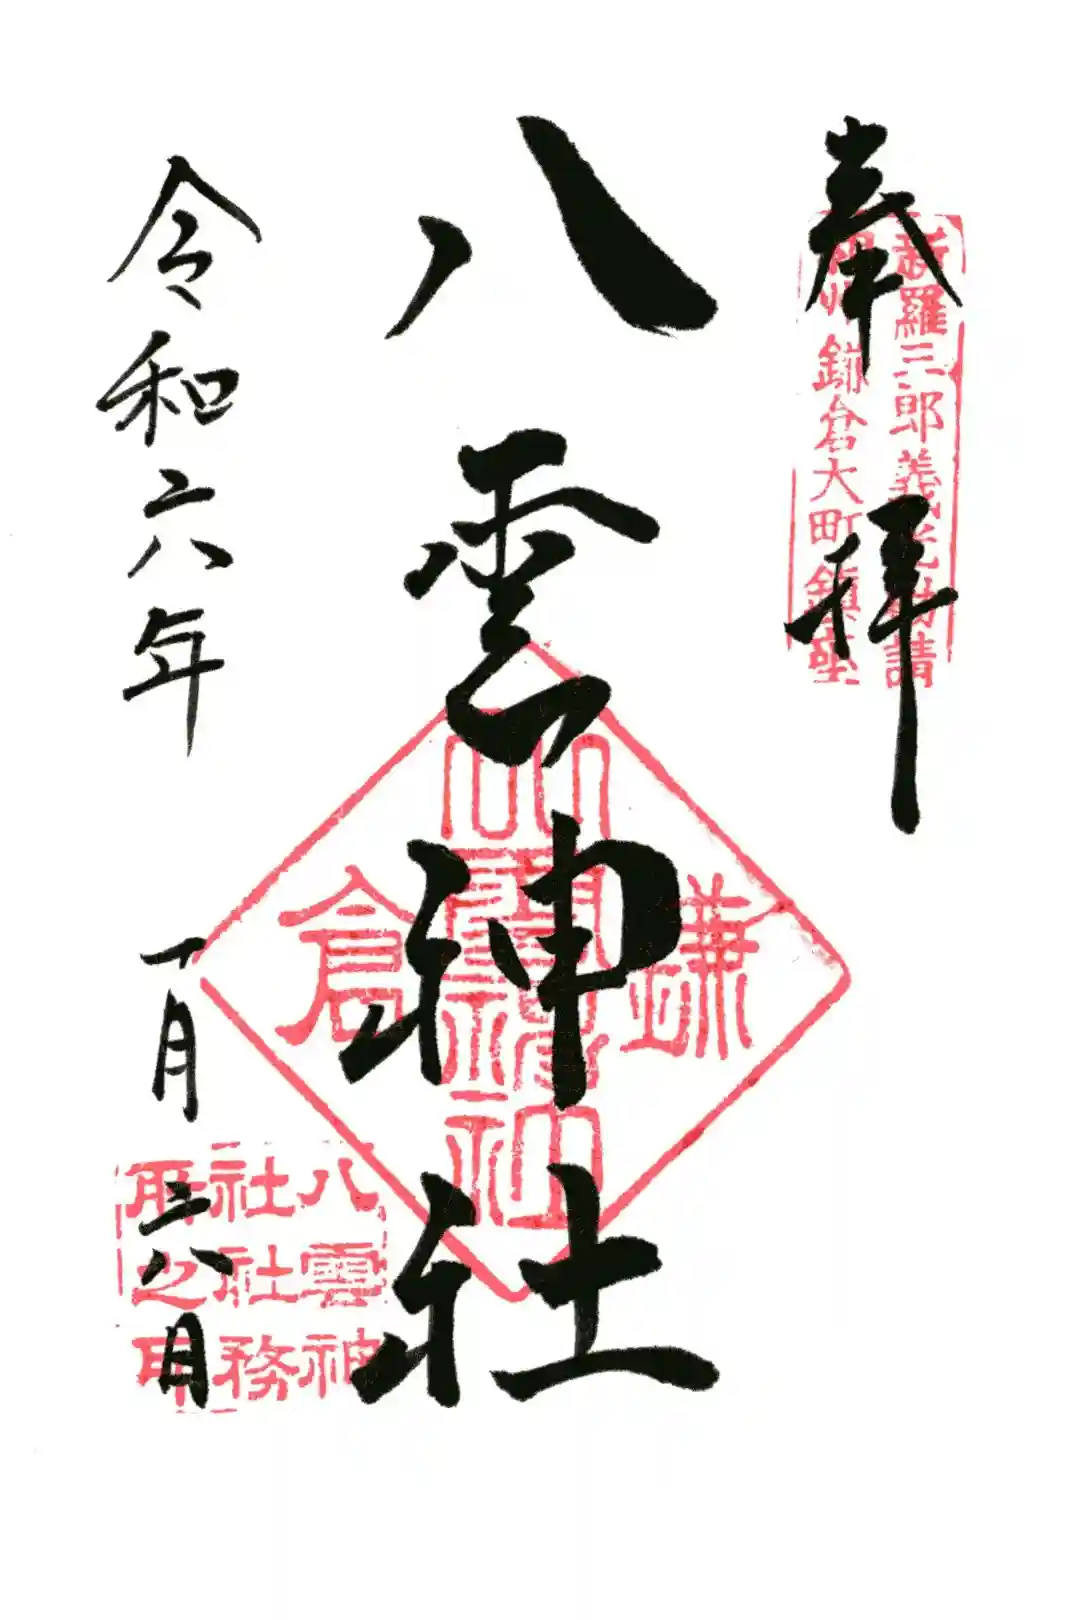 奉拝
新羅三郎義光勧請
相州鎌倉大町鎮座
八雲神社
鎌倉
八雲神社
令和六年 月 日
八雲神
社社務
所之印